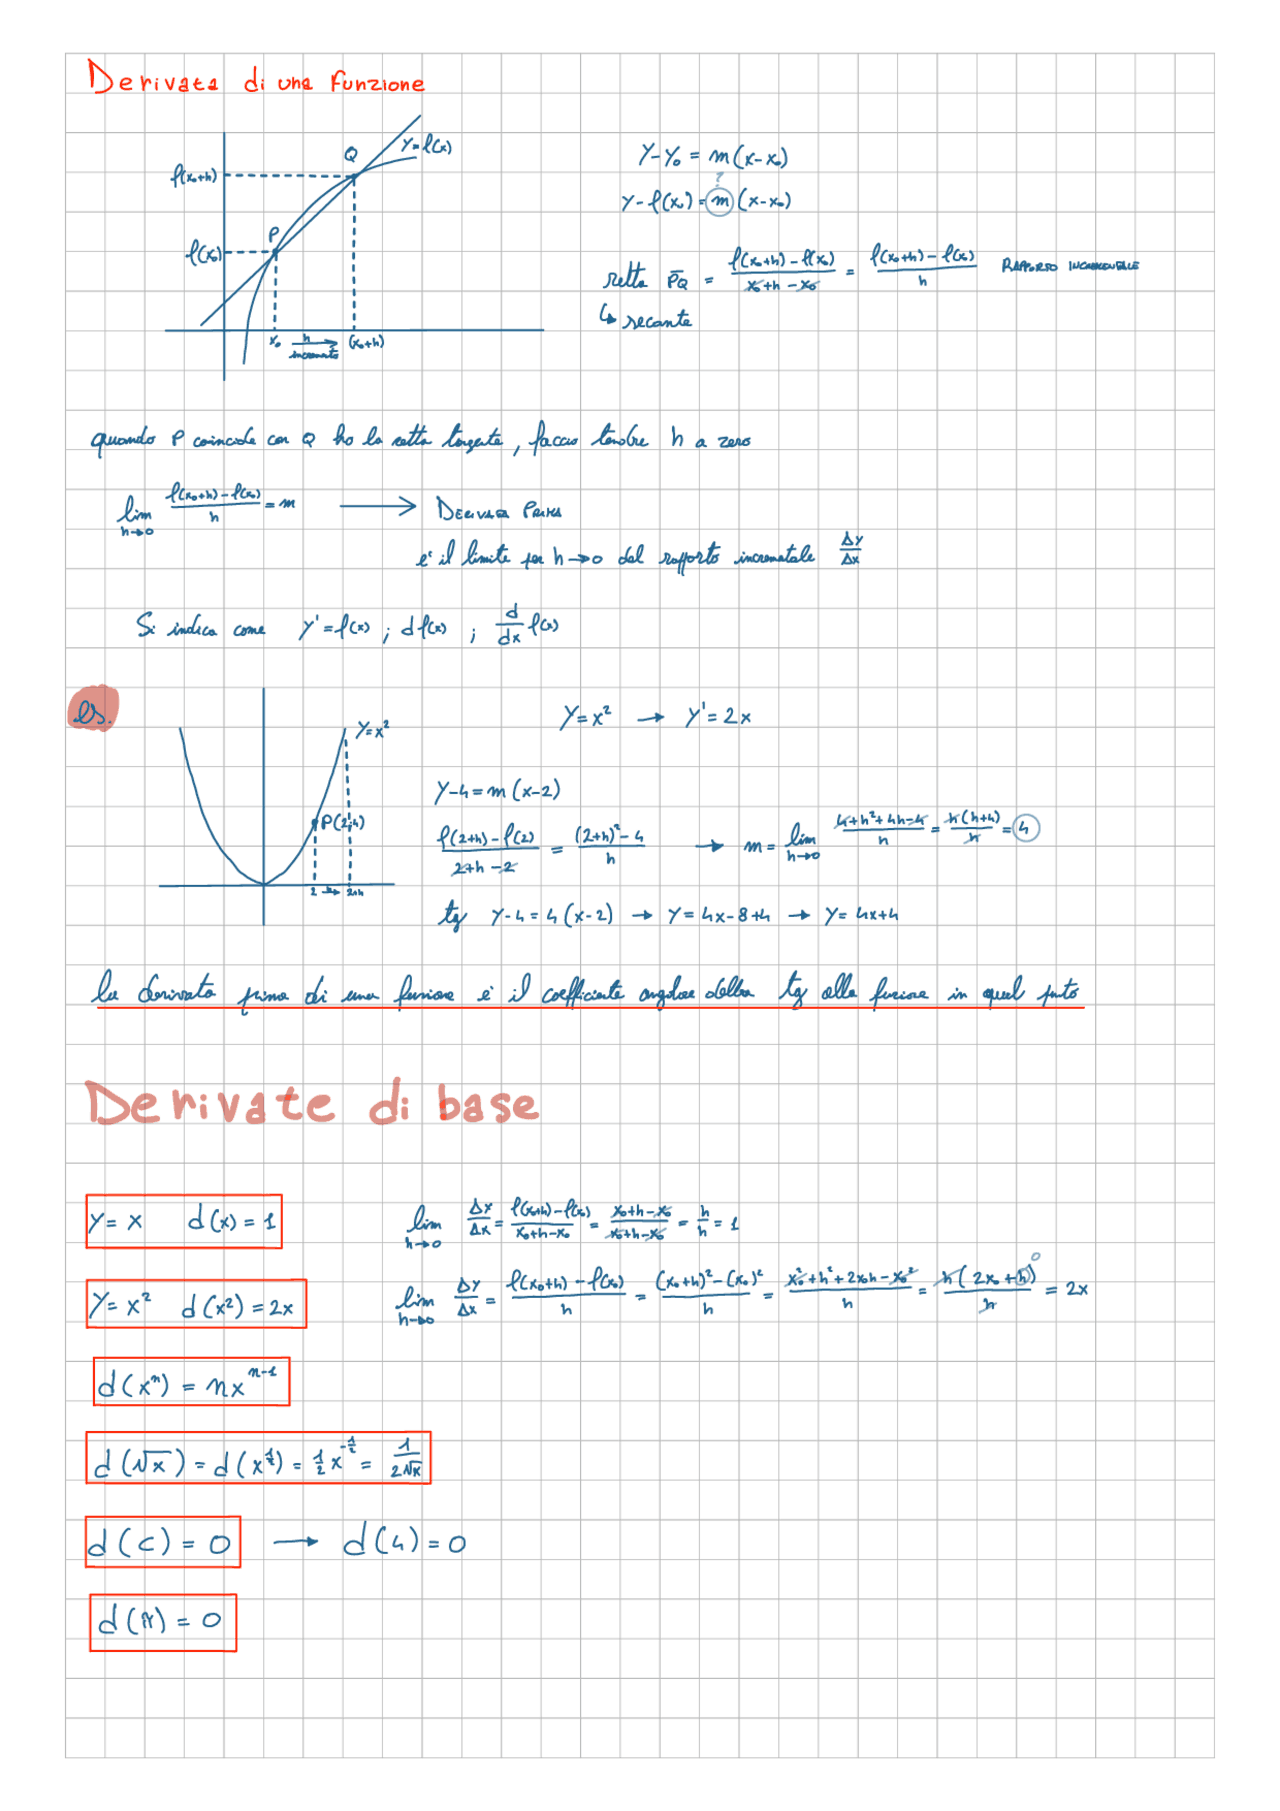 Derivata di una funzione
y=f(x)
Q
f(x₀+h)
P
f(x₀)
x₀ h→ incremento (x₀+h)
y-y₀ = m(x-x₀)
?
y-f(x₀)=m(x-x₀)
retta P̄Q = (f(x₀+h)-f(x₀))/(x₀+h-x₀) = (f(x₀+h)-f(x₀))/h RAPPORTO INCREMENTALE
↳ secante
quando P coincide con Q ho la retta tangente, faccio tendre h a zero
lim h→0 (f(x₀+h)-f(x₀))/h = m ⟶ DERIVATA PRIMA
e' il limite per h→0 del rapporto incrementale Δy/Δx
Si indica come y'=f(x) ; df(x) ; d/dx f(x)
es.
y=x²
P(2;4)
2 h→ 2+h
y=x² → y'=2x
y-4=m(x-2)
(f(2+h)-f(2))/(2+h-2) = ((2+h)²-4)/h → m= lim h→0 (4+h²+4h-4)/h = h(h+4)/h = 4
tg y-4=4(x-2) → y=4x-8+4 → y=4x+4
la derivata prima di una funzione e' il coefficiente angolare della tg alla funzione in quel punto
Derivate di base
y=x d(x)=1 lim h→0 Δy/Δx = (f(x₀+h)-f(x₀))/(x₀+h-x₀) = (x₀+h-x₀)/(x₀+h-x₀) = h/h = 1
y=x² d(x²)=2x lim h→0 Δy/Δx = (f(x₀+h)-f(x₀))/h = ((x₀+h)²-(x₀)²)/h = (x₀²+h²+2x₀h-x₀²)/h = h(2x₀+h)/h = 2x
0
d(xⁿ) = nxⁿ⁻¹
d(√x)=d(x^½)=½x^-½ = 1/(2√x)
d(c)=0 → d(4)=0
d(π)=0